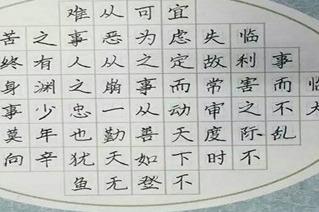 临大
事而不乱
临利害之际不
失故常审度时
宜虑定而动天下不
可为之事从善如登
从恶从崩一勤天无
难事人之忠也犹鱼
之有渊少年辛
苦终身事莫向